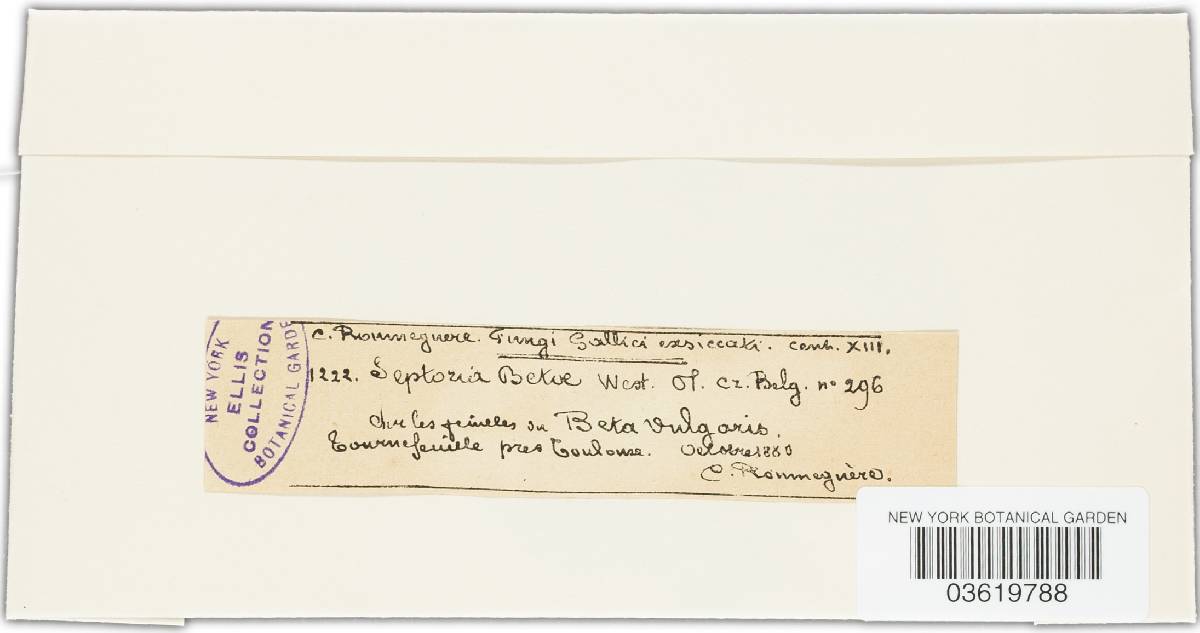 C. Roumeguère. Fungi Gallici exsiccati. cent. XIII.
1222. Septoria Betae West. Of. Cr. Belg. no 296
Sur les feuilles du Beta Vulgaris.
Tournefeuille pres Toulouse. Octobre 1880
C. Roumeguère.
NEW YORK
ELLIS
COLLECTION
BOTANICAL GARDE
NEW YORK BOTANICAL GARDEN
03619788